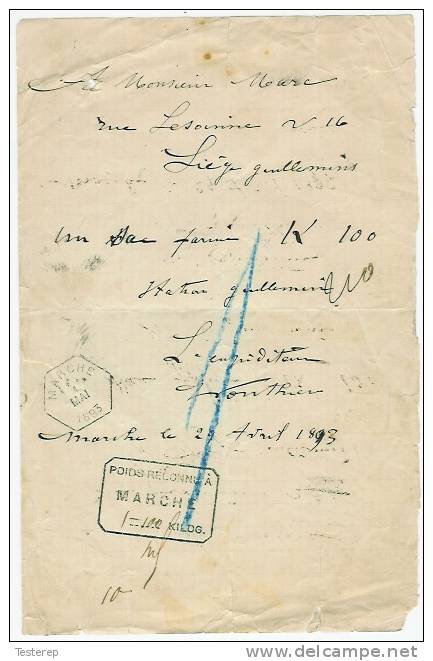 A Monsieur Marc
rue Lesoinne N 16
Liége guillemins
Un sac farine K 100
Station guillemins
L'expéditeur
Wouthier
MARCHE
1
MAI
1893
Marche le 2 Avril 1893
POIDS RECONNU À
MARCHE
1=100 KILOG.
10
Testerep
delcampe.net